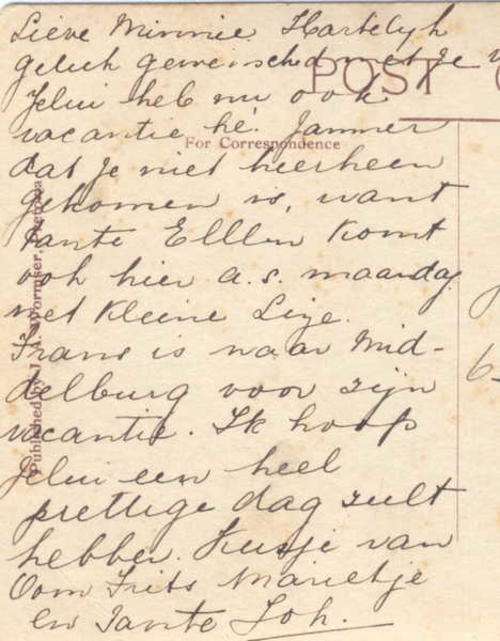 Lieve Minnie. Hartelyk
geluk gewenschd met Je
POST
Jelui heb nu ook
vacantie hè. Jammer
For Correspondence
dat Je niet hierheen
gekomen is, want
Tante Elllen komt
ook hier a.s. maandag
met kleine Lize.
Frans is naar Mid-
delburg voor zijn
vacantie. Ik hoop
Jelui een heel
prettige dag zult
hebben. Kusje van
Oom Frits Marietje
en Tante Joh.
Published by J.